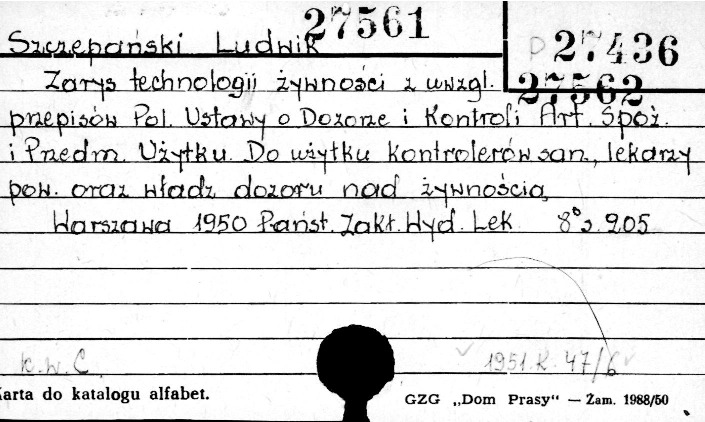 27561
Szczepański Ludwik
P 27436
27562
Zarys technologii żywności z uwzgl.
przepisów Pol. Ustawy o Dozorze i Kontroli Art. Spoż.
i Przedm. Użytku. Do użytku kontrolerów san., lekarzy
pow. oraz władz dozoru nad żywnością,
Warszawa 1950 Państ. Zakł. Wyd. Lek 8° s. 205
k.w.C. 1951.K.47/6
Karta do katalogu alfabet. GZG „Dom Prasy“ — Żam. 1988/50